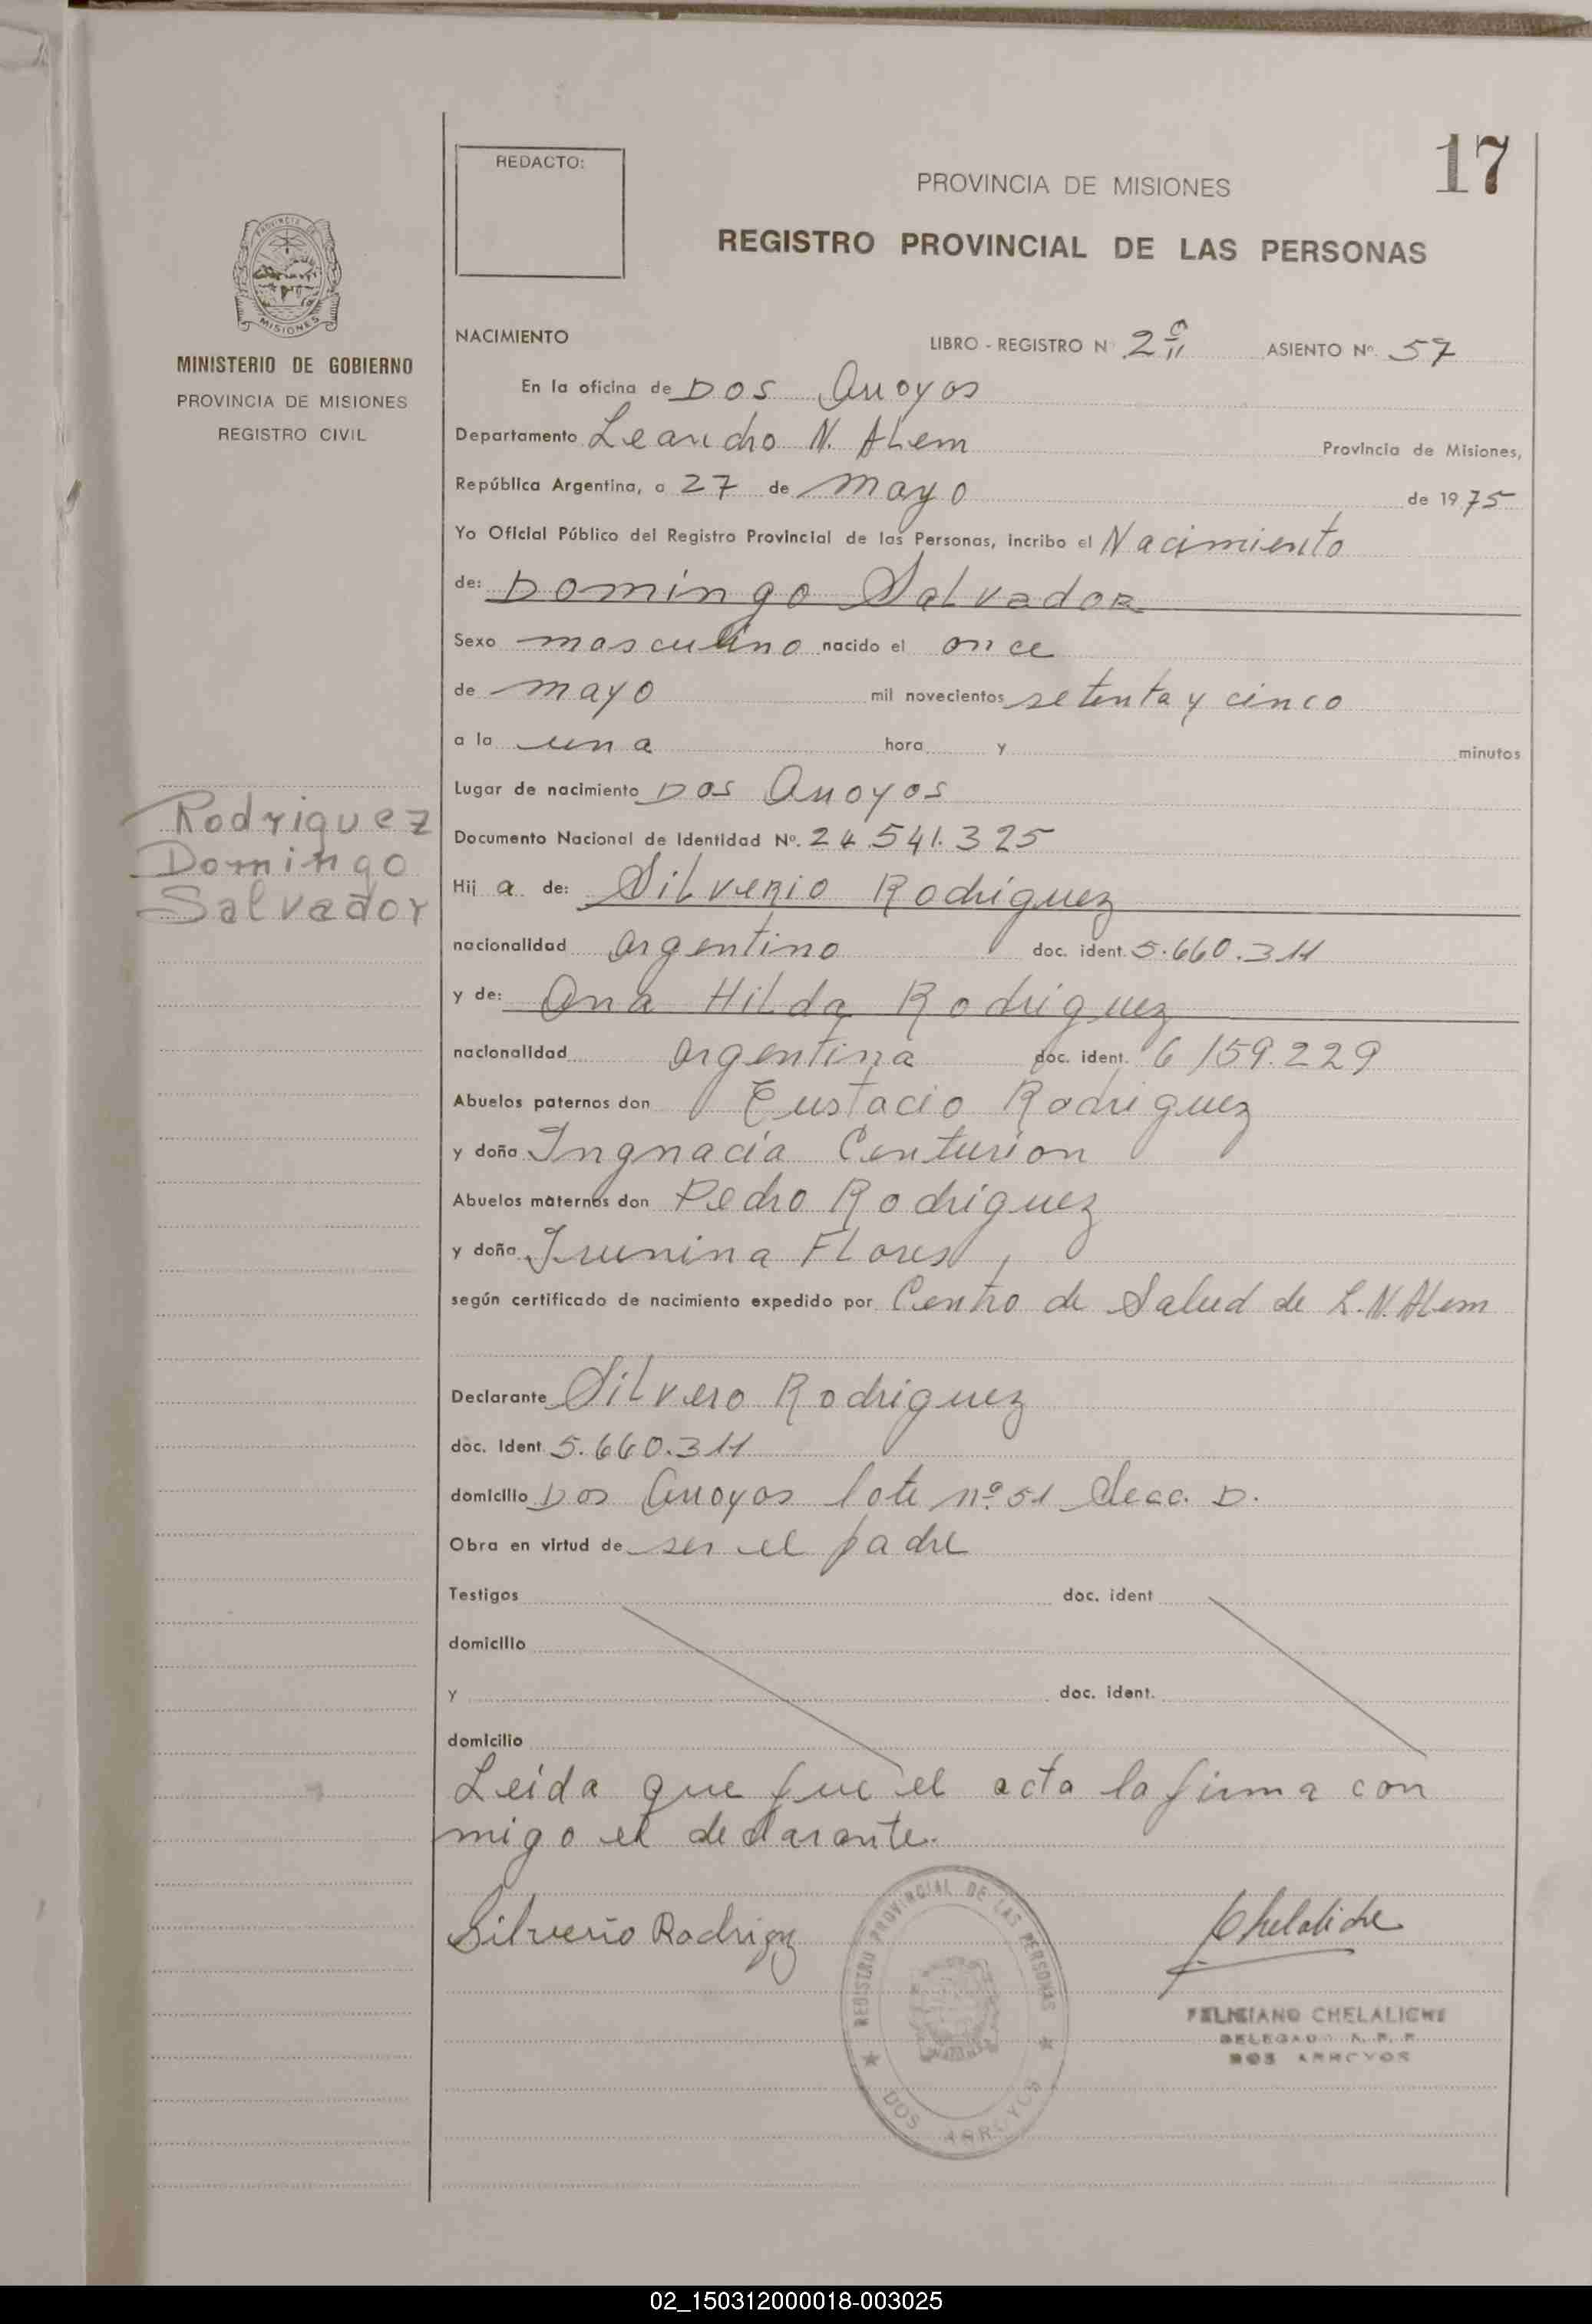 17
REDACTO:
PROVINCIA DE MISIONES
REGISTRO PROVINCIAL DE LAS PERSONAS
PROVINCIA DE
MISIONES
MINISTERIO DE GOBIERNO
PROVINCIA DE MISIONES
REGISTRO CIVIL
NACIMIENTO LIBRO - REGISTRO N 2º ASIENTO Nº. 57
En la oficina de Dos Arroyos
Departamento Leandro N. Alem Provincia de Misiones,
República Argentina, a 27 de mayo de 1975
Yo Oficial Público del Registro Provincial de las Personas, incribo el Nacimiento
de: Domingo Salvador
Sexo masculino nacido el once
de mayo mil novecientos setenta y cinco
a la una hora y minutos
Lugar de nacimiento Dos Arroyos
Rodriguez
Domingo
Salvador
Documento Nacional de Identidad Nº. 24.541.325
Hij a de: Silverio Rodriguez
nacionalidad argentino doc. ident. 5.660.311
y de: Ana Hilda Rodriguez
nacionalidad argentina doc. ident. 6 159.229
Abuelos paternos don Eustacio Rodriguez
y doña Ingnacia Centurion
Abuelos maternos don Pedro Rodriguez
y doña Irunina Flores
según certificado de nacimiento expedido por Centro de Salud de L.N. Alem
Declarante Silvero Rodriguez
doc. Ident 5.660.311
domicilio Dos Arroyos lote nº 51 Secc. D.
Obra en virtud de ser el padre
Testigos doc. ident
domicilio
y doc. ident.
domicilio
Leida que fue el acta la firma con
migo el declarante.
Silverio Rodrigz Chelaliche
REGISTRO PROVINCIAL DE LAS PERSONAS
DOS ARROYOS
FELICIANO CHELALICHE
DELEGADO R. P. P.
DOS ARROYOS
02_150312000018-003025